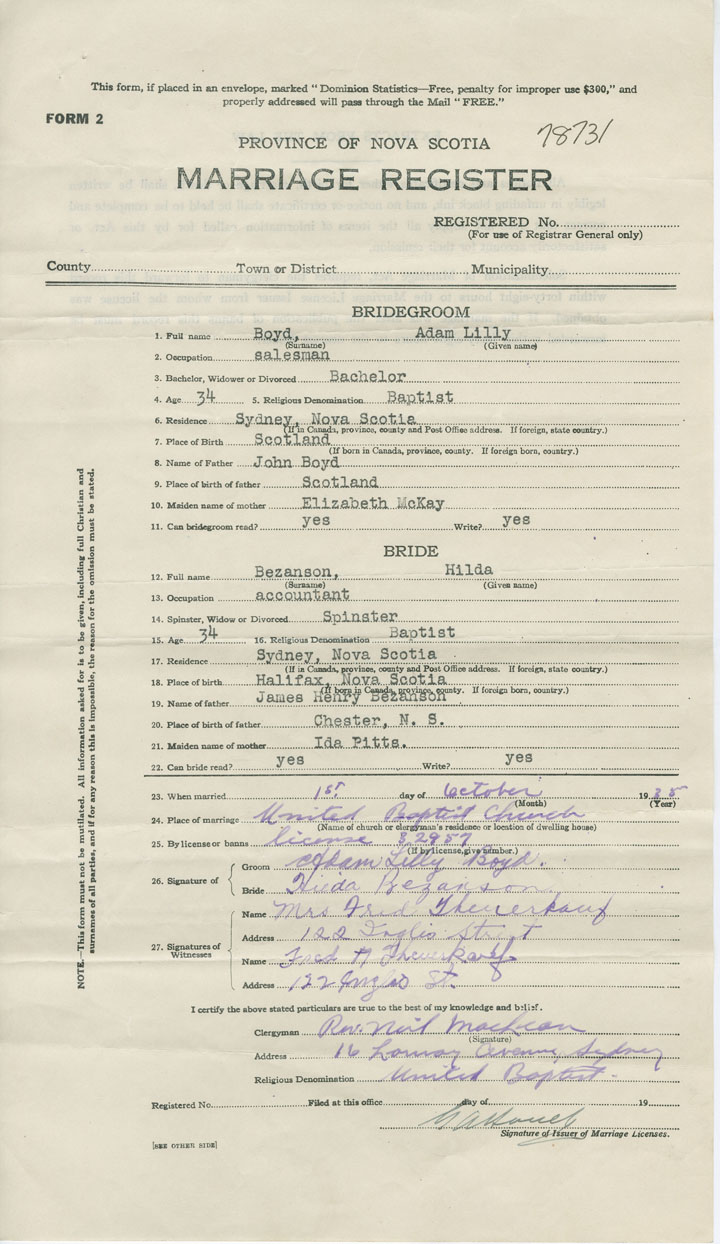 This form, if placed in an envelope, marked "Dominion Statistics—Free, penalty for improper use $300," and
properly addressed will pass through the Mail "FREE."
FORM 2
78731
PROVINCE OF NOVA SCOTIA
MARRIAGE REGISTER
REGISTERED No.
(For use of Registrar General only)
County Town or District Municipality
BRIDEGROOM
1. Full name Boyd, Adam Lilly
(Surname) (Given name)
2. Occupation salesman
3. Bachelor, Widower or Divorced Bachelor
4. Age 34 5. Religious Denomination Baptist
6. Residence Sydney, Nova Scotia
(If in Canada, province, county and Post Office address. If foreign, state country.)
7. Place of Birth Scotland
(If born in Canada, province, county. If foreign born, country.)
8. Name of Father John Boyd
9. Place of birth of father Scotland
10. Maiden name of mother Elizabeth McKay
11. Can bridegroom read? yes Write? yes
BRIDE
12. Full name Bezanson, Hilda
(Surname) (Given name)
13. Occupation accountant
14. Spinster, Widow or Divorced Spinster
15. Age 34 16. Religious Denomination Baptist
17. Residence Sydney, Nova Scotia
(If in Canada, province, county and Post Office address. If foreign, state country.)
18. Place of birth Halifax, Nova Scotia
(If born in Canada, province, county. If foreign born, country.)
19. Name of father James Henry Bezanson
20. Place of birth of father Chester, N. S.
21. Maiden name of mother Ida Pitts.
22. Can bride read? yes Write? yes
23. When married 1st day of October 1935
(Month) (Year)
24. Place of marriage United Baptist Church
(Name of church or clergyman's residence or location of dwelling house)
25. By license or banns license 82957
(If by license, give number.)
26. Signature of
Groom Adam Lilly Boyd.
Bride Hilda Bezanson
27. Signatures of Witnesses
Name Mrs Fred Theuerkauf
Address 122 Inglis Street
Name Fred Theuerkauf
Address 122 Inglis St.
I certify the above stated particulars are true to the best of my knowledge and belief.
Clergyman Rev. Neil
(Signature)
Address 16 Sydney
Religious Denomination United Baptist.
Registered No. Filed at this office day of 19
Signature of Issuer of Marriage Licenses.
[SEE OTHER SIDE]
NOTE.—This form must not be mutilated. All information asked for is to be given, including full Christian and
surnames of all parties, and if for any reason this is impossible, the reason for the omission must be stated.